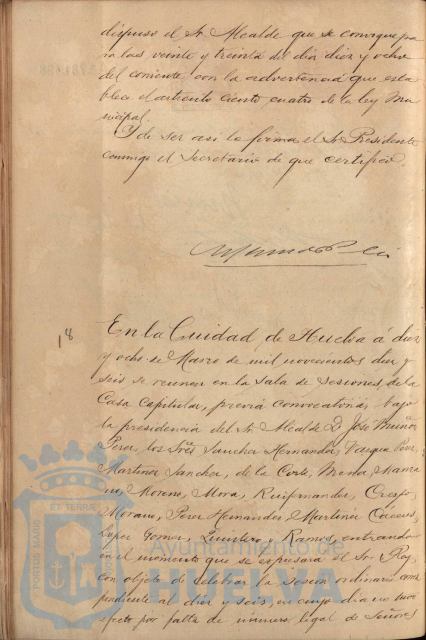 dispuso el Sr. Alcalde que se convoque pa
ra las veinte y treinta del dia diez y ocho
del corriente, con la advertencia que esta
blece el articulo ciento cuatro de la ley Mu
nicipal.
Y de ser asi lo firma el Sr. Presidente
conmigo el Secretario de que certifico.
18
En la Ciudad de Huelva á diez
y ocho de Marzo de mil novecientos diez y
seis se reunen en la Sala de Sesiones, de la
Casa Capitular, previa convocatoria, bajo
la presidencia del Sr. Alcalde D. José Muñoz
Perez, los Sres Sanchez Hernandez, Vazquez Perez,
Martinez Sanchez, de la Corte, Mora
Moreno, Mora, Ruifernandez, Crespo,
Morano, Perez Hernandez, Martinez
Lopez Gomez, Quintero y Ramos, entrando
en el momento que se expresará el Sr. Rey,
con objeto de celebrar la sesion ordinaria corres
pondiente al diez y seis, en cuyo dia no tuvo
efecto por falta de número legal de Señores
PORTUS MARIS ET TERRÆ CUSTODIA
Ayuntamiento de
HUELVA